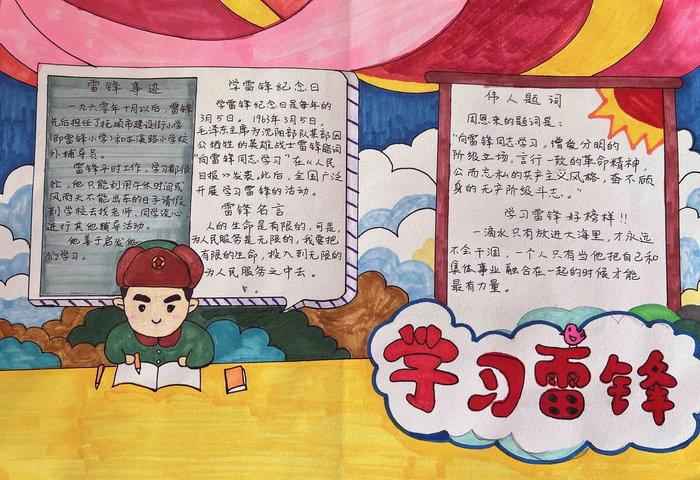 雷锋事迹
一九六零年十月以后,雷锋
先后担任了抚顺市建设街小学
(即雷锋小学)和本溪路小学校
外辅导员。
雷锋平时工作,学习都很
忙,他只能利用午休时间或
风雨天不能出车的日子请假
到学校去找老师,同学谈心
进行其他辅导活动。
他善于启发他
们学习。
学雷锋纪念日
学雷锋纪念日是每年的
3月5日。1963年3月5日,
毛泽东主席为沈阳部队某部因
公牺牲的英雄战士雷锋题词
"向雷锋同志学习"在《人民
日报》发表,此后,全国广泛
开展学习雷锋的活动。
雷锋名言
人的生命是有限的,可是,
为人民服务是无限的,我要把
有限的生命,投入到无限的
为人民服务之中去。
伟人题词
周恩来的题词是:
"向雷锋同志学习,憎爱分明的
阶级立场,言行一致的革命精神,
公而忘私的共产主义风格,奋不顾
身的无产阶级斗志。"
学习雷锋好榜样!!
一滴水只有放进大海里,才永远
不会干涸,一个人只有当他把自己和
集体事业融合在一起的时候才能
最有力量。
学习雷锋